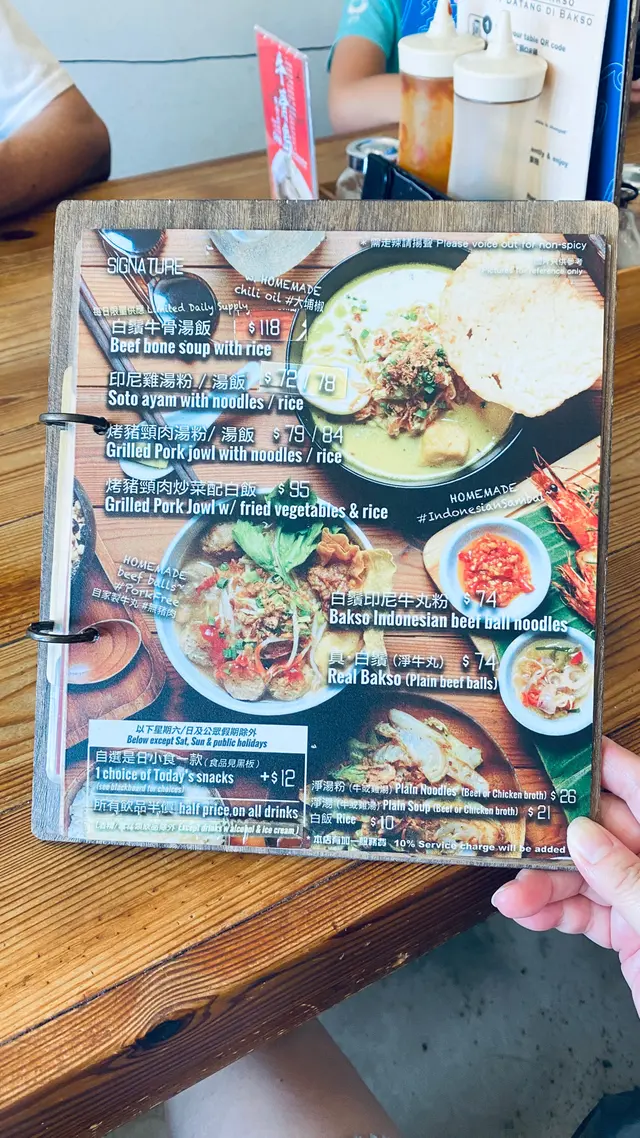 DATANG DI BAKSO
your table QR code
& enjoy
* 需走辣請揚聲 Please voice out for non-spicy
Pictures for reference only
SIGNATURE
HOMEMADE
chili oil #大埔椒
每日限量供應 Limited Daily Supply
白鑐牛骨湯飯 $118
Beef bone soup with rice
印尼雞湯粉 / 湯飯 $72 / 78
Soto ayam with noodles / rice
烤豬頸肉湯粉 / 湯飯 $79 / 84
Grilled Pork jowl with noodles / rice
烤豬頸肉炒菜配白飯 $95
Grilled Pork Jowl w/ fried vegetables & rice
HOMEMADE
#IndonesianSambal
HOMEMADE
beef balls~
#PorkFree
自家製牛丸 #無豬肉
白鑐印尼牛丸粉 $74
Bakso Indonesian beef ball noodles
真·白鑐 (淨牛丸) $74
Real Bakso (Plain beef balls)
以下星期六/日及公眾假期除外
Below except Sat, Sun & public holidays
自選是日小食一款 (食品見黑板)
1 choice of Today's snacks +$12
(see blackboard for choices)
所有飲品半價 half price on all drinks
Except drinks w alcohol & ice cream)
淨湯粉 (牛或雞湯) Plain Noodles (Beef or Chicken broth) $26
淨湯 (牛或雞湯) Plain Soup (Beef or Chicken broth) $21
白飯 Rice $10
* 本店有加一服務費 10% Service charge will be added